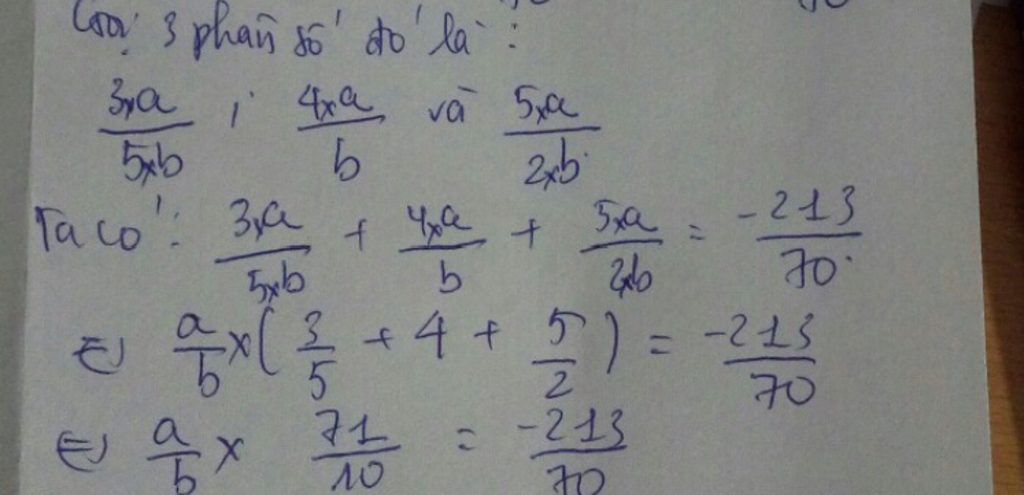 Gọi 3 phân số đó là :
3xa/5xb ; 4xa/b và 5xa/2xb
Ta có : 3xa/5xb + 4xa/b + 5xa/2xb = -213/70
⇔ a/b x ( 3/5 + 4 + 5/2 ) = -213/70
⇔ a/b x 71/10 = -213/70